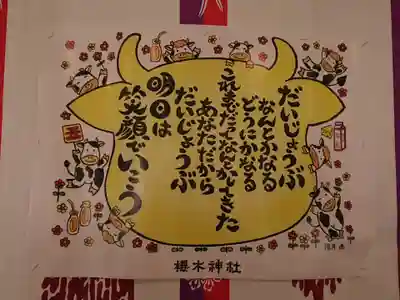 だいじょうぶ
なんとかなる
どうにかなる
これまだってなんとかしてきた
あなただから
だいじょうぶ
明日は
笑顔でいこう
櫻木神社